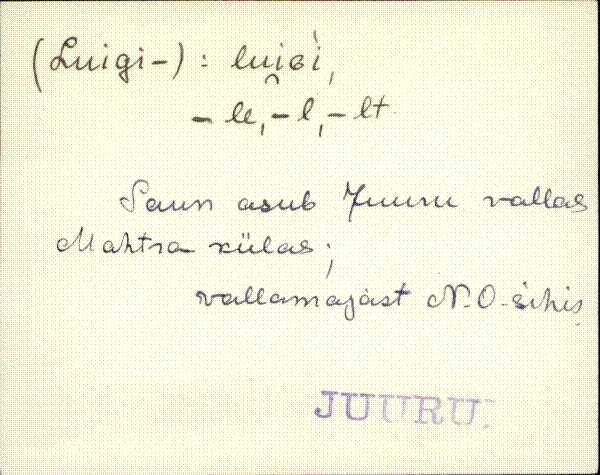 (Luigi-) : lui̯ɢi̇̀,
- le, - l, - lt
Saun asub Juuru vallas
Mahtra külas;
vallamajast N-O-sihis.
JUURU.